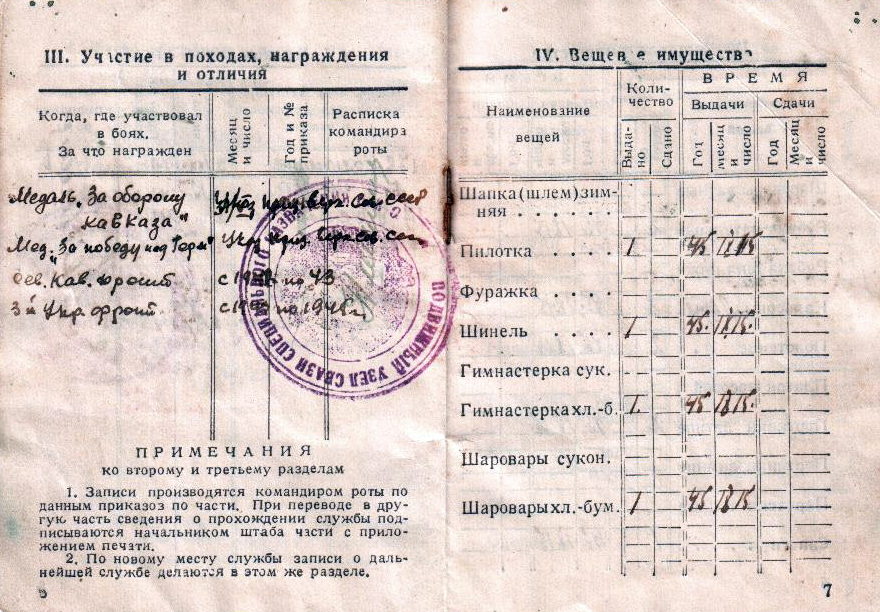 III. Участие в походах, награждения
и отличия
Когда, где участвовал
в боях.
За что награжден
Месяц
и число
Год и №
приказа
Расписка
командира
роты
Медаль „За оборону
Кавказа"
Указ през. верх. сов. ссср
Мед. „За победу над Герм"
Указ през. верх. сов. ссср
Сев. Кав. фронт
с 1942 по 43
3й Укр. фронт.
с 194 по 1945 г.
ПОДВИЖНЫЙ УЗЕЛ СВЯЗИ СПЕЦИАЛЬНОГО
ПРИМЕЧАНИЯ
ко второму и третьему разделам
1. Записи производятся командиром роты по
данным приказов по части. При переводе в дру-
гую часть сведения о прохождении службы под-
писываются начальником штаба части с прило-
жением печати.
2. По новому месту службы записи о даль-
нейшей службе делаются в этом же разделе.
6
IV. Вещевое имущество
Наименование
вещей
Коли-
чество
ВРЕМЯ
Выдачи
Сдачи
Выда-
но
Сдано
Год
Месяц
и
число
Год
Месяц
и
число
Шапка (шлем) зим-
няя . . . . . .
Пилотка . . . . 1 45
Фуражка . . . .
Шинель . . . . 1 45.
Гимнастерка сук.
Гимнастерка хл.-б. 1. 45
Шаровары сукон.
Шаровары хл.-бум. 1 45
7